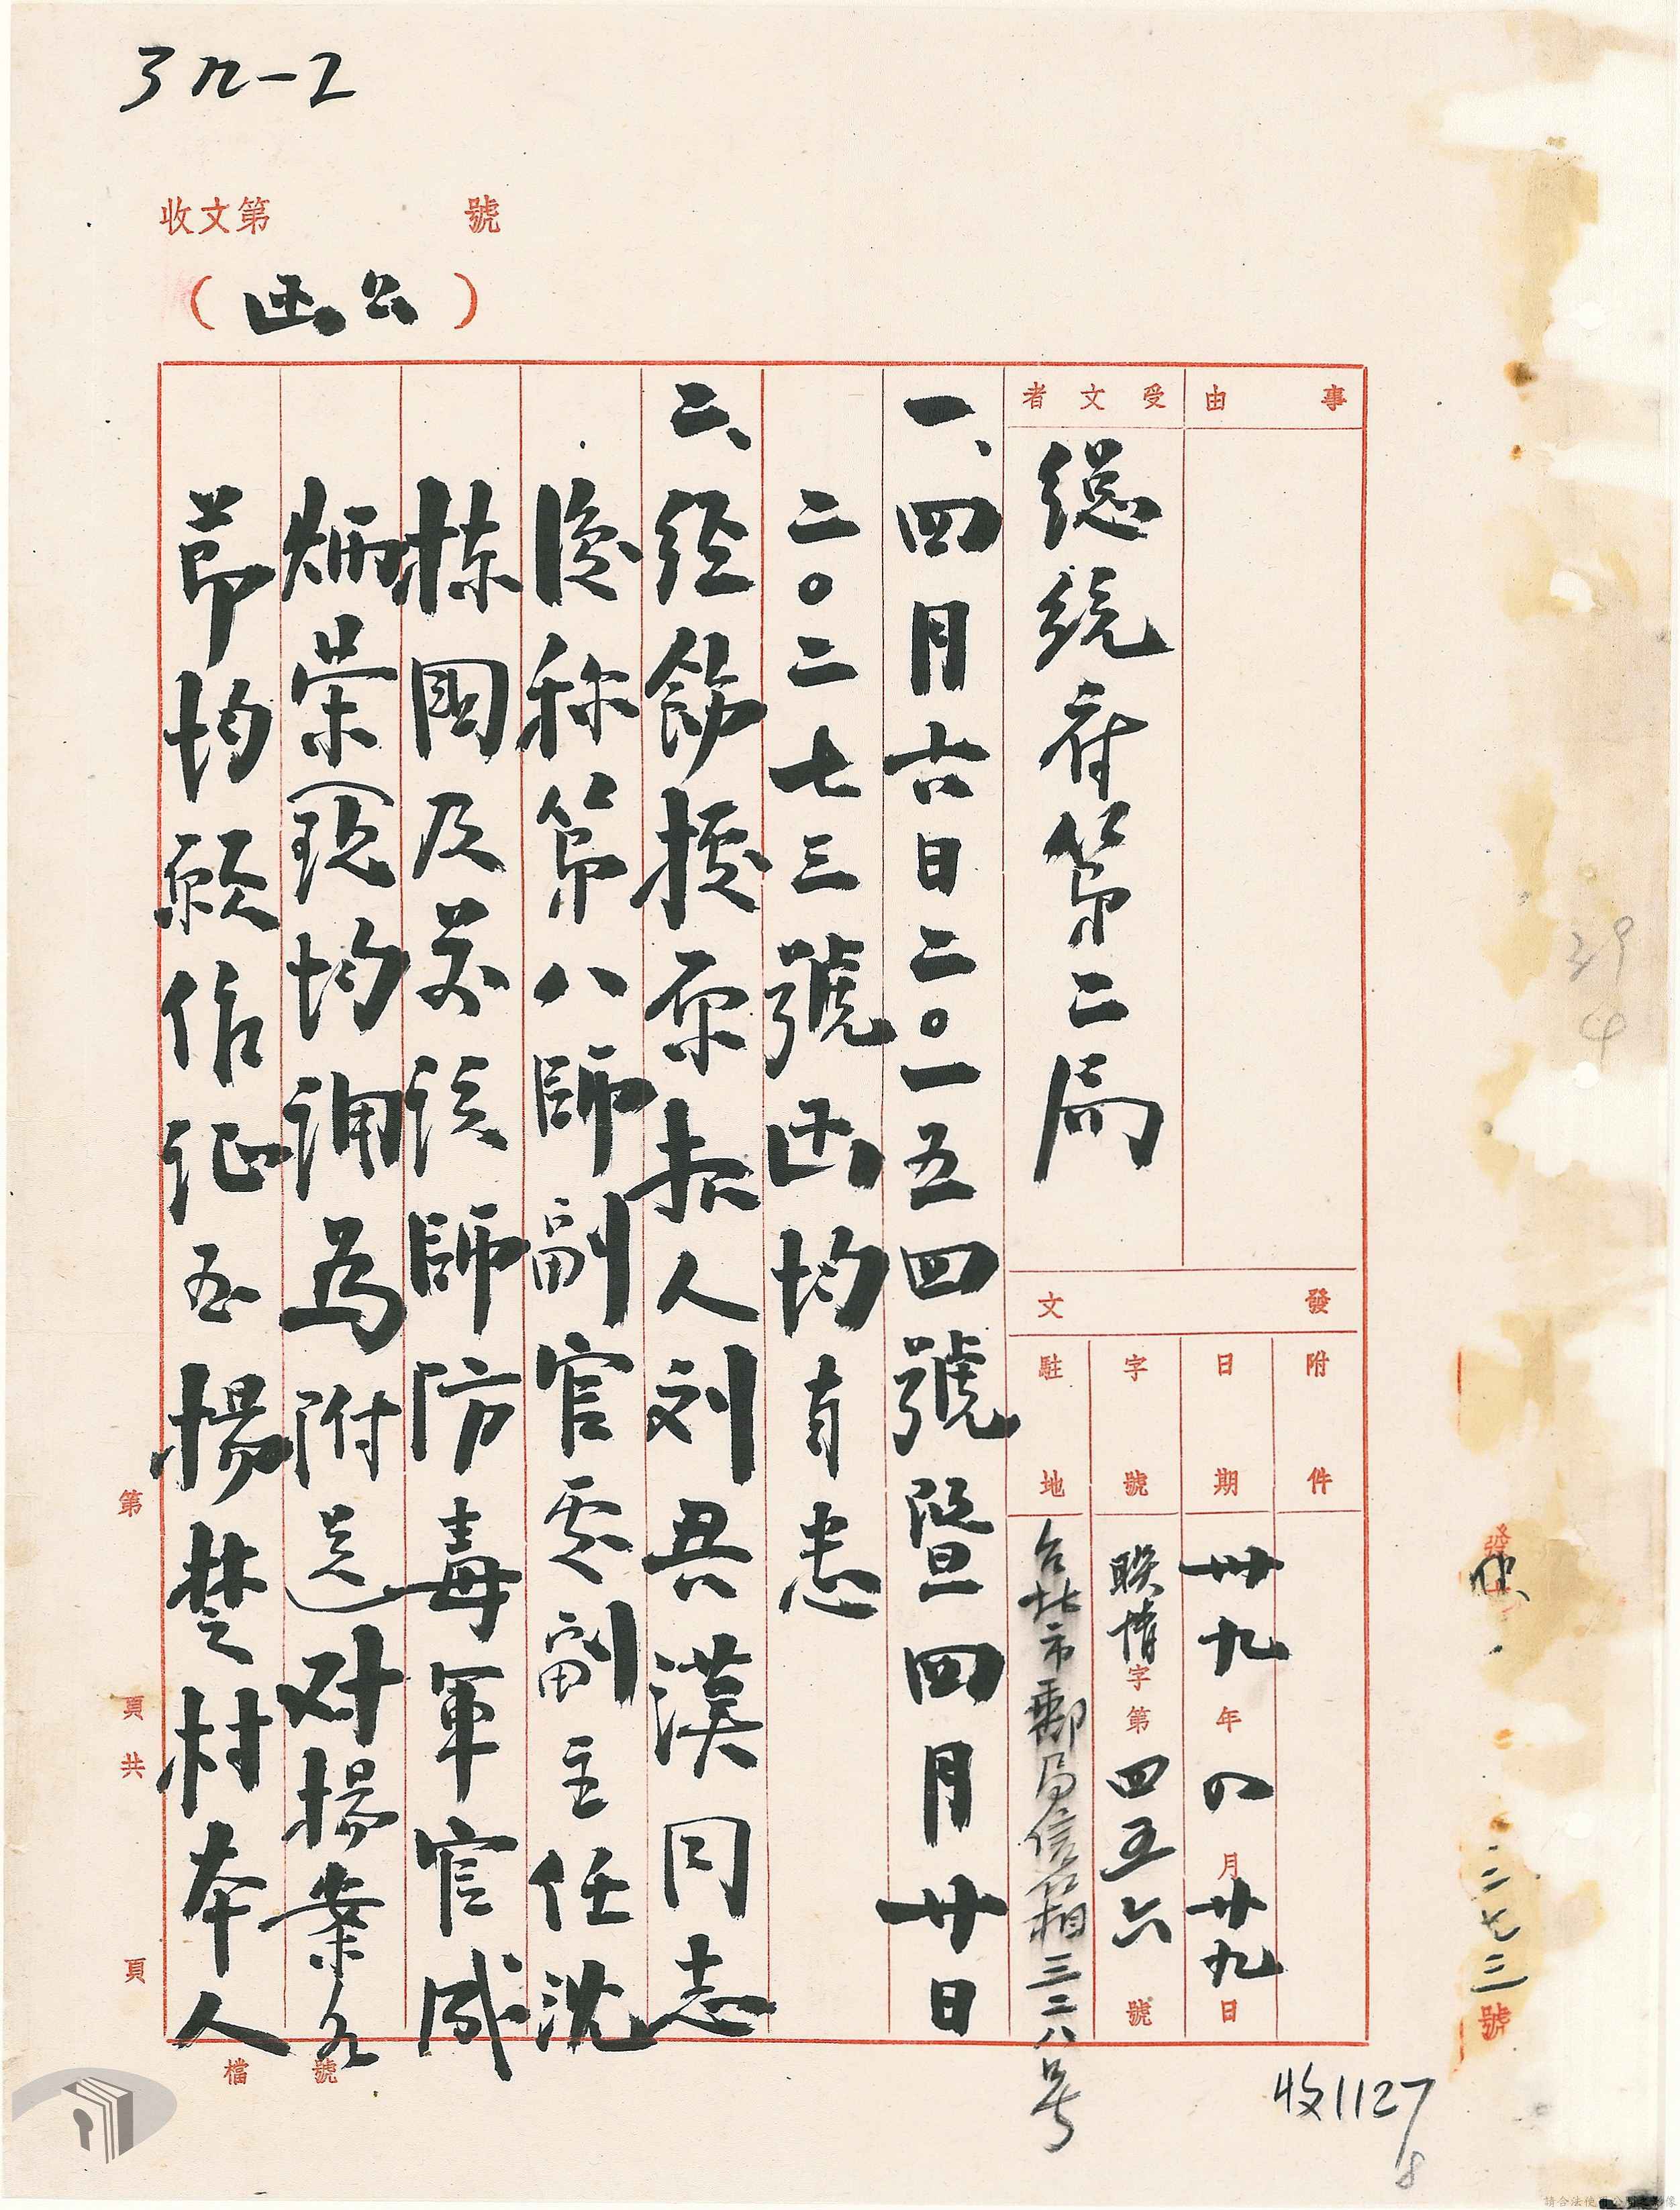 3九-2
收文第　　　號
（函公）
事由
受文者
總統府第二局
發文
附件
日期
卅九年四月廿九日
字號
聯情字第四五六號
駐地
台北市郵局信箱三二八号
一、四月六日二〇一五四號暨四月廿日
二〇二七三號函均有悉
二、經飭據原報人刘興漢同志
後称第八師副官處副主任沈
棟國及前該師防毒軍官咸
炳榮(現均調為附送对楊案九
節均願作証至楊楚材本人
第　頁共　頁
檔號
二七三號
39
4
收1127
8